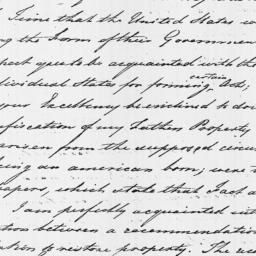 Time that the United States w
ng the Form of their Governmen
pect ought to be acquainted with th
dividual States for forming certain Acts;
your Excellency be inclined to do
nfiscation of my Fathers Property
arisen from the supposed circu
being an american born; were
papers, which state that Fact a
I am perfectly acquainted wit
ction between a recommendation
to restore property. The